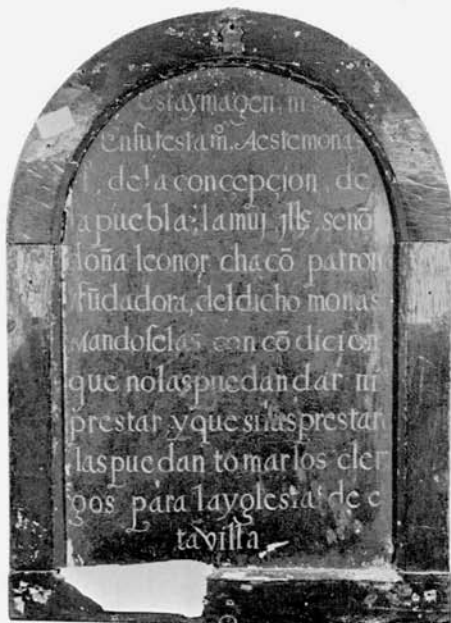 estaymagen, m
ensutestam̃. Aestemonas
, dela concepcion, de
la puebla; lamuj jll̃s, señor
doña leonor, chacõ patron
fũdadora, deldicho monas
Mandoselas con cõdicion
que nolaspuedandar ni
prestar yque silasprestar
laspuedan tomarlos cler
gos para laygle sia, de e
tavilla